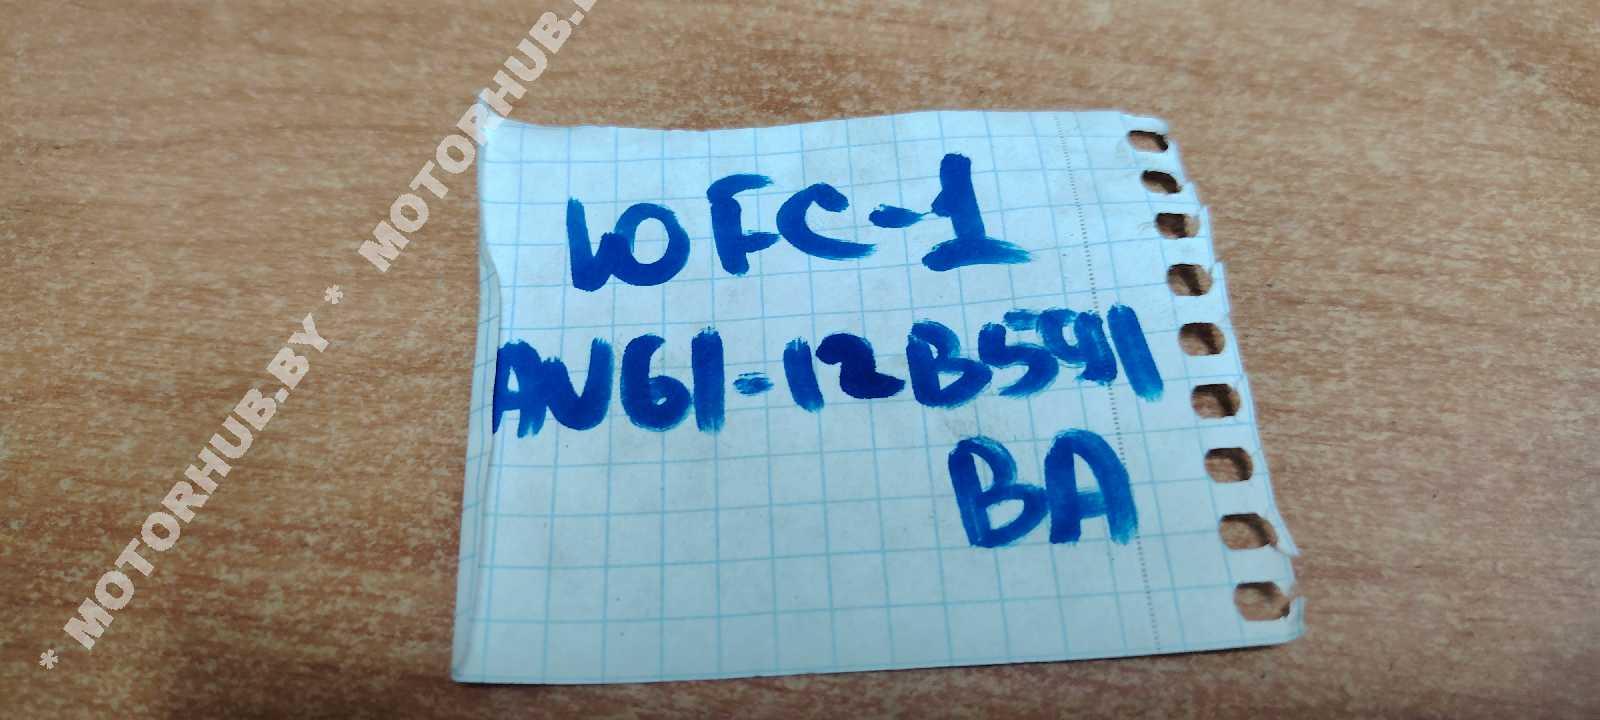 ЮFC-1
AV61-12B591
BA
* MOTORHUB.BY * MOTORHUB.B